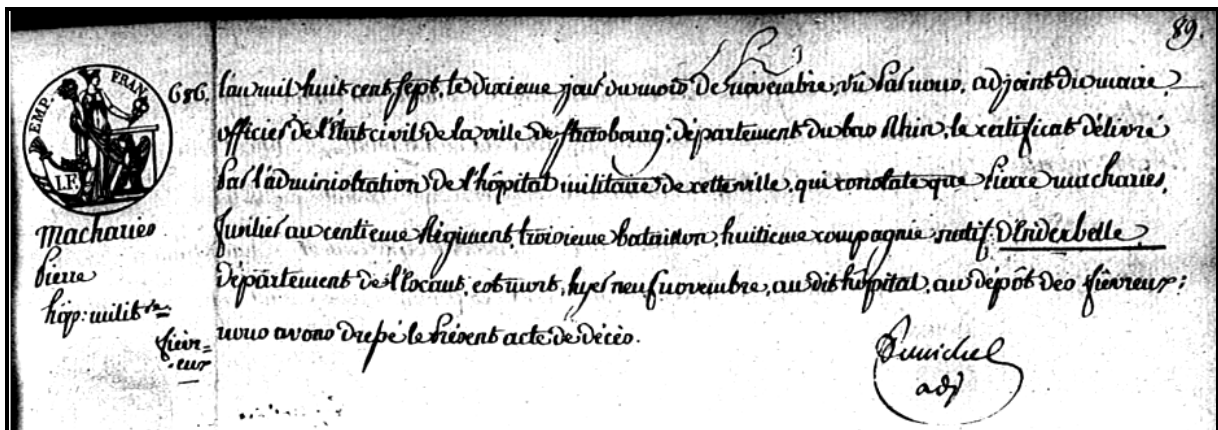 89.
EMP. FRAN.
I.F.
Macharies
Pierre
hôp: milit re
fièvr=
.eux
686. L'an mil huit cent sept, le dixieme jour du mois de novembre, vu par nous, adjoint du maire,
officier de l'État civil de la ville de Strasbourg, département du bas Rhin, le certificat délivré
par l'administration de l'hôpital militaire de cette ville, qui constate que Pierre Macharies,
fusilier au centieme Régiment, troisieme bataillon, huitieme compagnie, natif D'Enderbelle,
Département de l'Escaut, est mort, hyer neuf novembre, au dit hôpital, au dépôt des fièvreux;
nous avons dressé le présent acte de décès.
adj